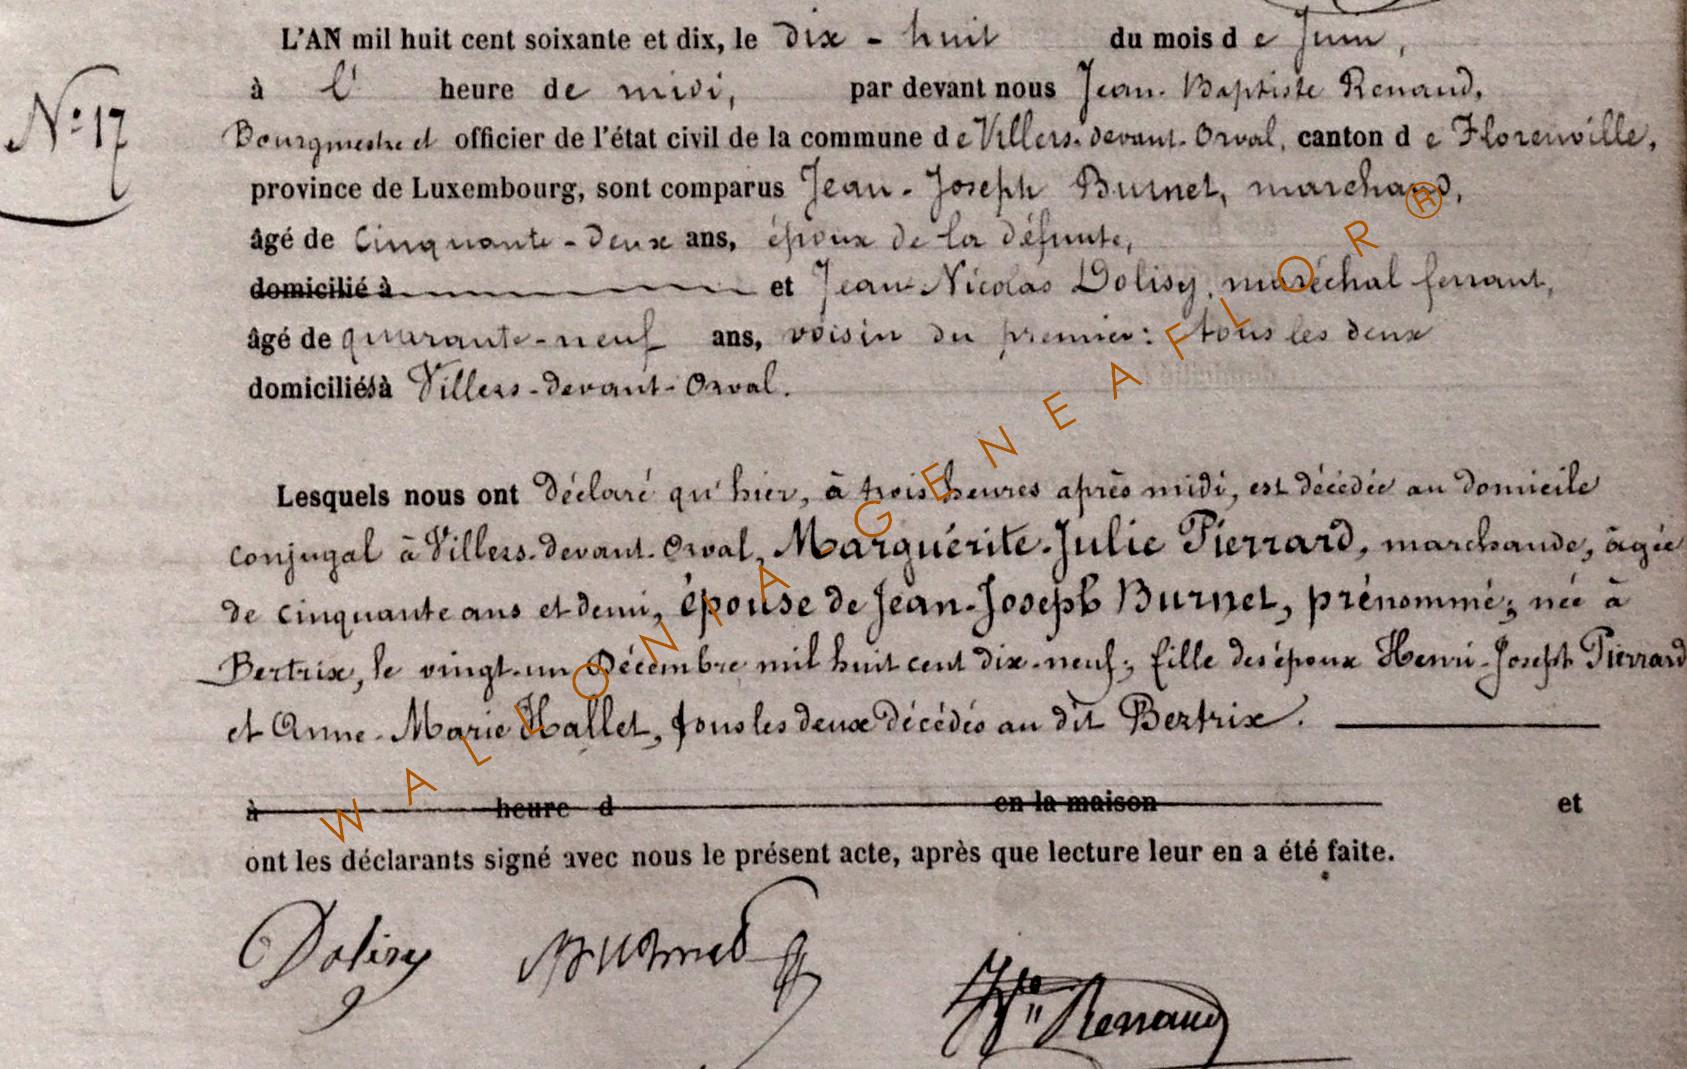 L'AN mil huit cent soixante et dix, le dix-huit du mois de Juin,
à l' heure de midi, par devant nous Jean-Baptiste Renaud,
N° 17
Bourgmestre et officier de l'état civil de la commune de Villers-devant-Orval, canton de Florenville,
province de Luxembourg, sont comparus Jean-Joseph Burnet, marchand,
âgé de Cinquante-deux ans, époux de la défunte,
domicilié à et Jean-Nicolas Dolisy, maréchal ferrant,
âgé de quarante-neuf ans, voisin du premier: tous les deux
domiciliés à Villers-devant-Orval.
Lesquels nous ont déclaré qu'hier, à trois heures après midi, est décédée au domicile
conjugal à Villers-devant-Orval, Marguérite-Julie Pierrard, marchande, âgée
de cinquante ans et demi, épouse de Jean-Joseph Burnet, prénommé; née à
Bertrix, le vingt-un Décembre mil huit cent dix-neuf; fille des époux Henri-Joseph Pierrard
et Anne-Marie Hallet, tous les deux décédés au dit Bertrix.
à heure d en la maison et
ont les déclarants signé avec nous le présent acte, après que lecture leur en a été faite.
Dolisy Burnet Renaud
WALLONIA GENEAFLOR®